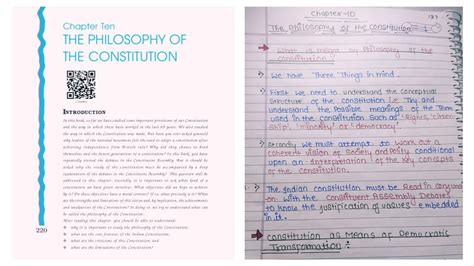 Chapter Ten
THE PHILOSOPHY OF
THE CONSTITUTION
INTRODUCTION
In this book, so far we have studied some important provisions of our Constitution
and the way in which these have worked in the last 69 years. We also studied
the way in which the Constitution was made. But have you ever asked yourself
why leaders of the national movement felt the need to adopt a constitution after
achieving independence from British rule? Why did they choose to bind
themselves and the future generations to a constitution? In this book, you have
repeatedly visited the debates in the Constituent Assembly. But it should be
asked why the study of the constitution must be accompanied by a deep
examination of the debates in the Constituent Assembly? This question will be
addressed in this chapter. Secondly, it is important to ask what kind of a
constitution we have given ourselves. What objectives did we hope to achieve
by it? Do these objectives have a moral content? If so, what precisely is it? What
are the strengths and limitations of this vision and, by implication, the achievements
and weaknesses of the Constitution? In doing so, we try to understand what can
be called the philosophy of the Constitution.
After reading this chapter, you should be able to understand:
why it is important to study the philosophy of the Constitution;
what are the core features of the Indian Constitution;
what are the criticisms of this Constitution; and
what are the limitations of the Constitution?
220
Chapter-10
The Philosophy of the Constitution
What is meant by Philosophy of the
constitution?
We have Three Things in mind.
First we need to understand the conceptual
Structure of the constitution i.e Try and
understand the Possible meanings of the Term
used in the constitution Such as 'Rights, citizen
ship, 'minority' or 'democracy'.
Secondly we must attempt to Work out a
coherent vision of Society and Polity conditional
upon an Interpretation of the Key concepts
of the constitution.
The Indian constitution must be Read in
on with the Constituent Assembly Debates
to know the justification of values embedded
in it.
constitution as Means of Democratic
Transformation: